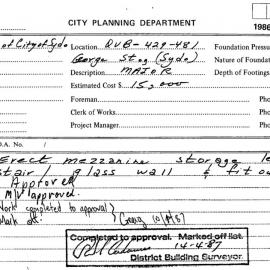 CITY PLANNING DEPARTMENT
1986
of City of Syd Location QVB - 429-481 Foundation Pressu
George St (Syd) Nature of Founda
Description MAJOR Depth of Footings
Estimated Cost $ 15,000
Foreman Pho
Clerk of Works Pho
Project Manager Pho
D.A. No. /
Erect mezzanine storage le
stair / glass wall & fit ou
Approved
approved.
Work completed to approval)
Mark off.
Completed to approval. Marked off list.
14-4-87
District Building Surveyor.